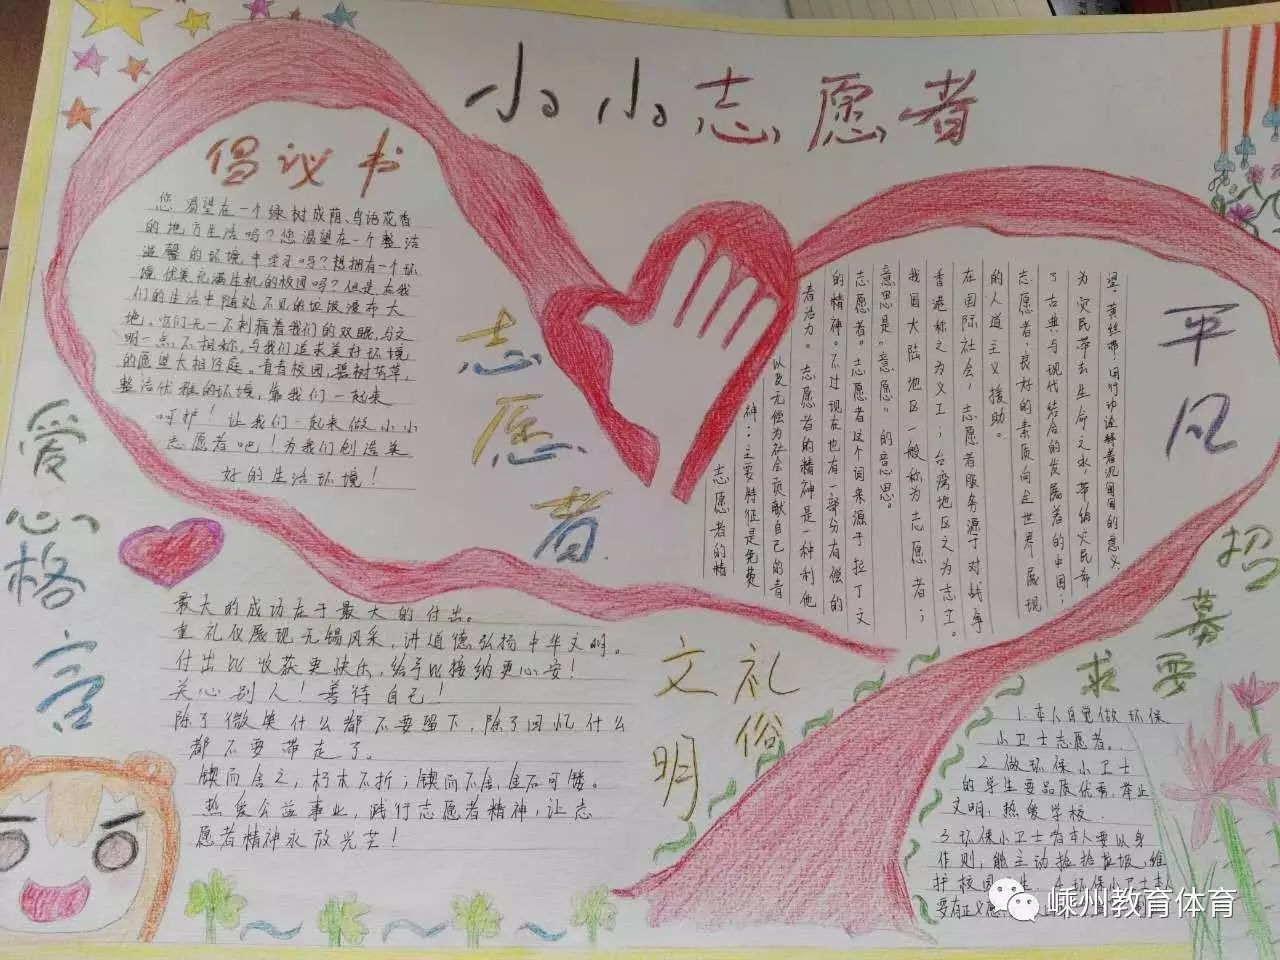 小小志愿者
倡议书
您渴望在一个绿树成荫、鸟语花香
的地方生活吗?您渴望在一个整洁
温馨的环境中学习吗?想拥有一个环
境优美充满生机的校园吗?但是在我
们的生活中随处不见的垃圾漫布大
地。它们无一不刺痛着我们的双眼,与文
明一点不相称,与我们追求美好环境
的愿望大相径庭。青青校园,碧树芳草,
整洁优雅的环境,靠我们一起来
呵护!让我们一起来做小小
志愿者吧!为我们创造美
好的生活环境!
志愿者
志愿者的精
神:主要特征是免费
以及无偿为社会贡献自己的青
者活力。志愿者的精神是一种利他
的精神。不过现在也有一部分有偿的
志愿者。志愿者这个词来源于拉丁文
意思是"意愿"的意思。
我国大陆地区一般称为志愿者;
香港称之为义工;台湾地区文为志工。
在国际社会,志愿者服务源于对战争
的人道主义援助。
志愿者:良好的素质向全世界展现
了古典与现代结合的发展着的中国;
为灾民带去生命之水,带给灾民希
望,黄丝带:用行动诠释着沉甸甸的意义
平凡
爱心格言
最大的成功在于最大的付出。
重礼仪展现无锡风采,讲道德弘扬中华文明。
付出比收获更快乐,给予比接纳更心安!
关心别人!善待自己!
除了微笑什么都不要留下,除了回忆什么
都不要带走了。
锲而舍之,朽木不折;锲而不舍,金石可镂。
热爱公益事业,践行志愿者精神,让志
愿者精神永放光芒!
文明
礼俗
招募
要求
1.本人自觉做环保
小卫士志愿者。
2.做环保小卫士
的学生要品质优秀,举止
文明,热爱学校.
3.环保小卫士为本人要以身
作则,能主动捡拾垃圾,维
护校园
环保小卫士本人
要有正义感
嵊州教育体育